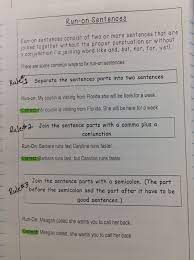 Run-on Sentences
Run-on sentences consist of two or more sentences that are
joined together without the proper punctuation or without
a conjunction (a joining word like and, but, nor, for, yet).
There are some common ways to fix run-on sentences
Rule#1 Separate the sentences parts into two sentences
Run-on: My cousin is visiting from Florida she will be here for a week.
Correct: My cousin is visiting from Florida. She will be here for a week
Rule#2 Join the sentence parts with a comma plus a
conjunction
Run-On: Barbara runs fast Caroline runs faster.
Correct: Barbara runs fast, but Caroline runs faster.
Rule#3 Join the sentence parts with a semicolon. (The part
before the semicolon and the part after it have to be
good sentences.)
Run-On: Meagan called she wants you to call her back.
Correct: Meagan called; she wants you to call her back.